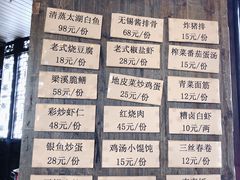 清蒸太湖白鱼
98元/份
无锡酱排骨
68元/份
炸猪排
15元/份
老式烧豆腐
18元/份
老式椒盐虾
28元/份
榨菜番茄蛋汤
15元/份
梁溪脆鳝
58元/份
地皮菜炒鸡蛋
25元/份
青菜面筋
12元/份
彩炒虾仁
48元/份
红烧肉
45元/份
糟卤白虾
10元/两
银鱼炒蛋
28元/份
鸡汤小馄饨
15元/份
三丝春卷
12元/份